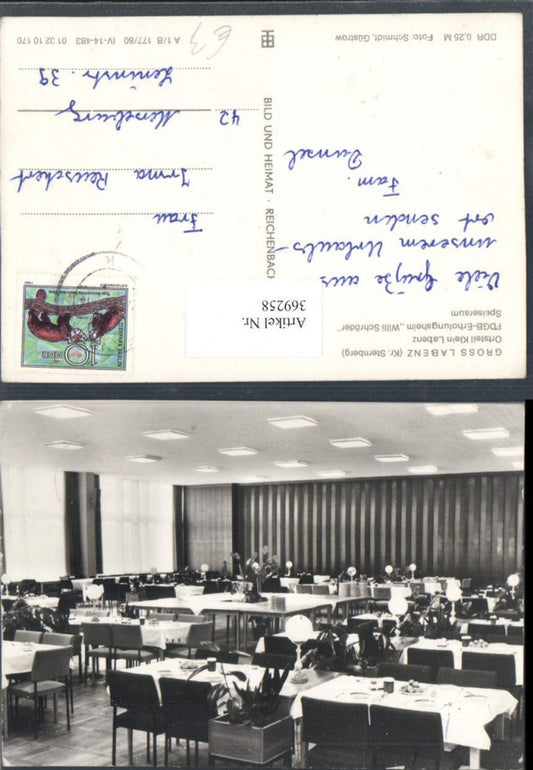 GROSS LABENZ (Kr. Sternberg)
Ortsteil Klein Labenz
FDGB-Erholungsheim „Willi Schröder"
Speiseraum
Viele Grüße aus
unserem Urlaubs-
ort senden
Fam.
Dunsel
BILD UND HEIMAT · REICHENBACH
DDR 0,25 M Foto: Schmidt, Güstrow
A 1/B 177/80 IV-14-483 01 02 10 170
€3
10 DDR
TIERPARK BERLIN
Frau
Irma Reuschert
42 Merseburg
Leninstr. 39
Artikel Nr.
369258